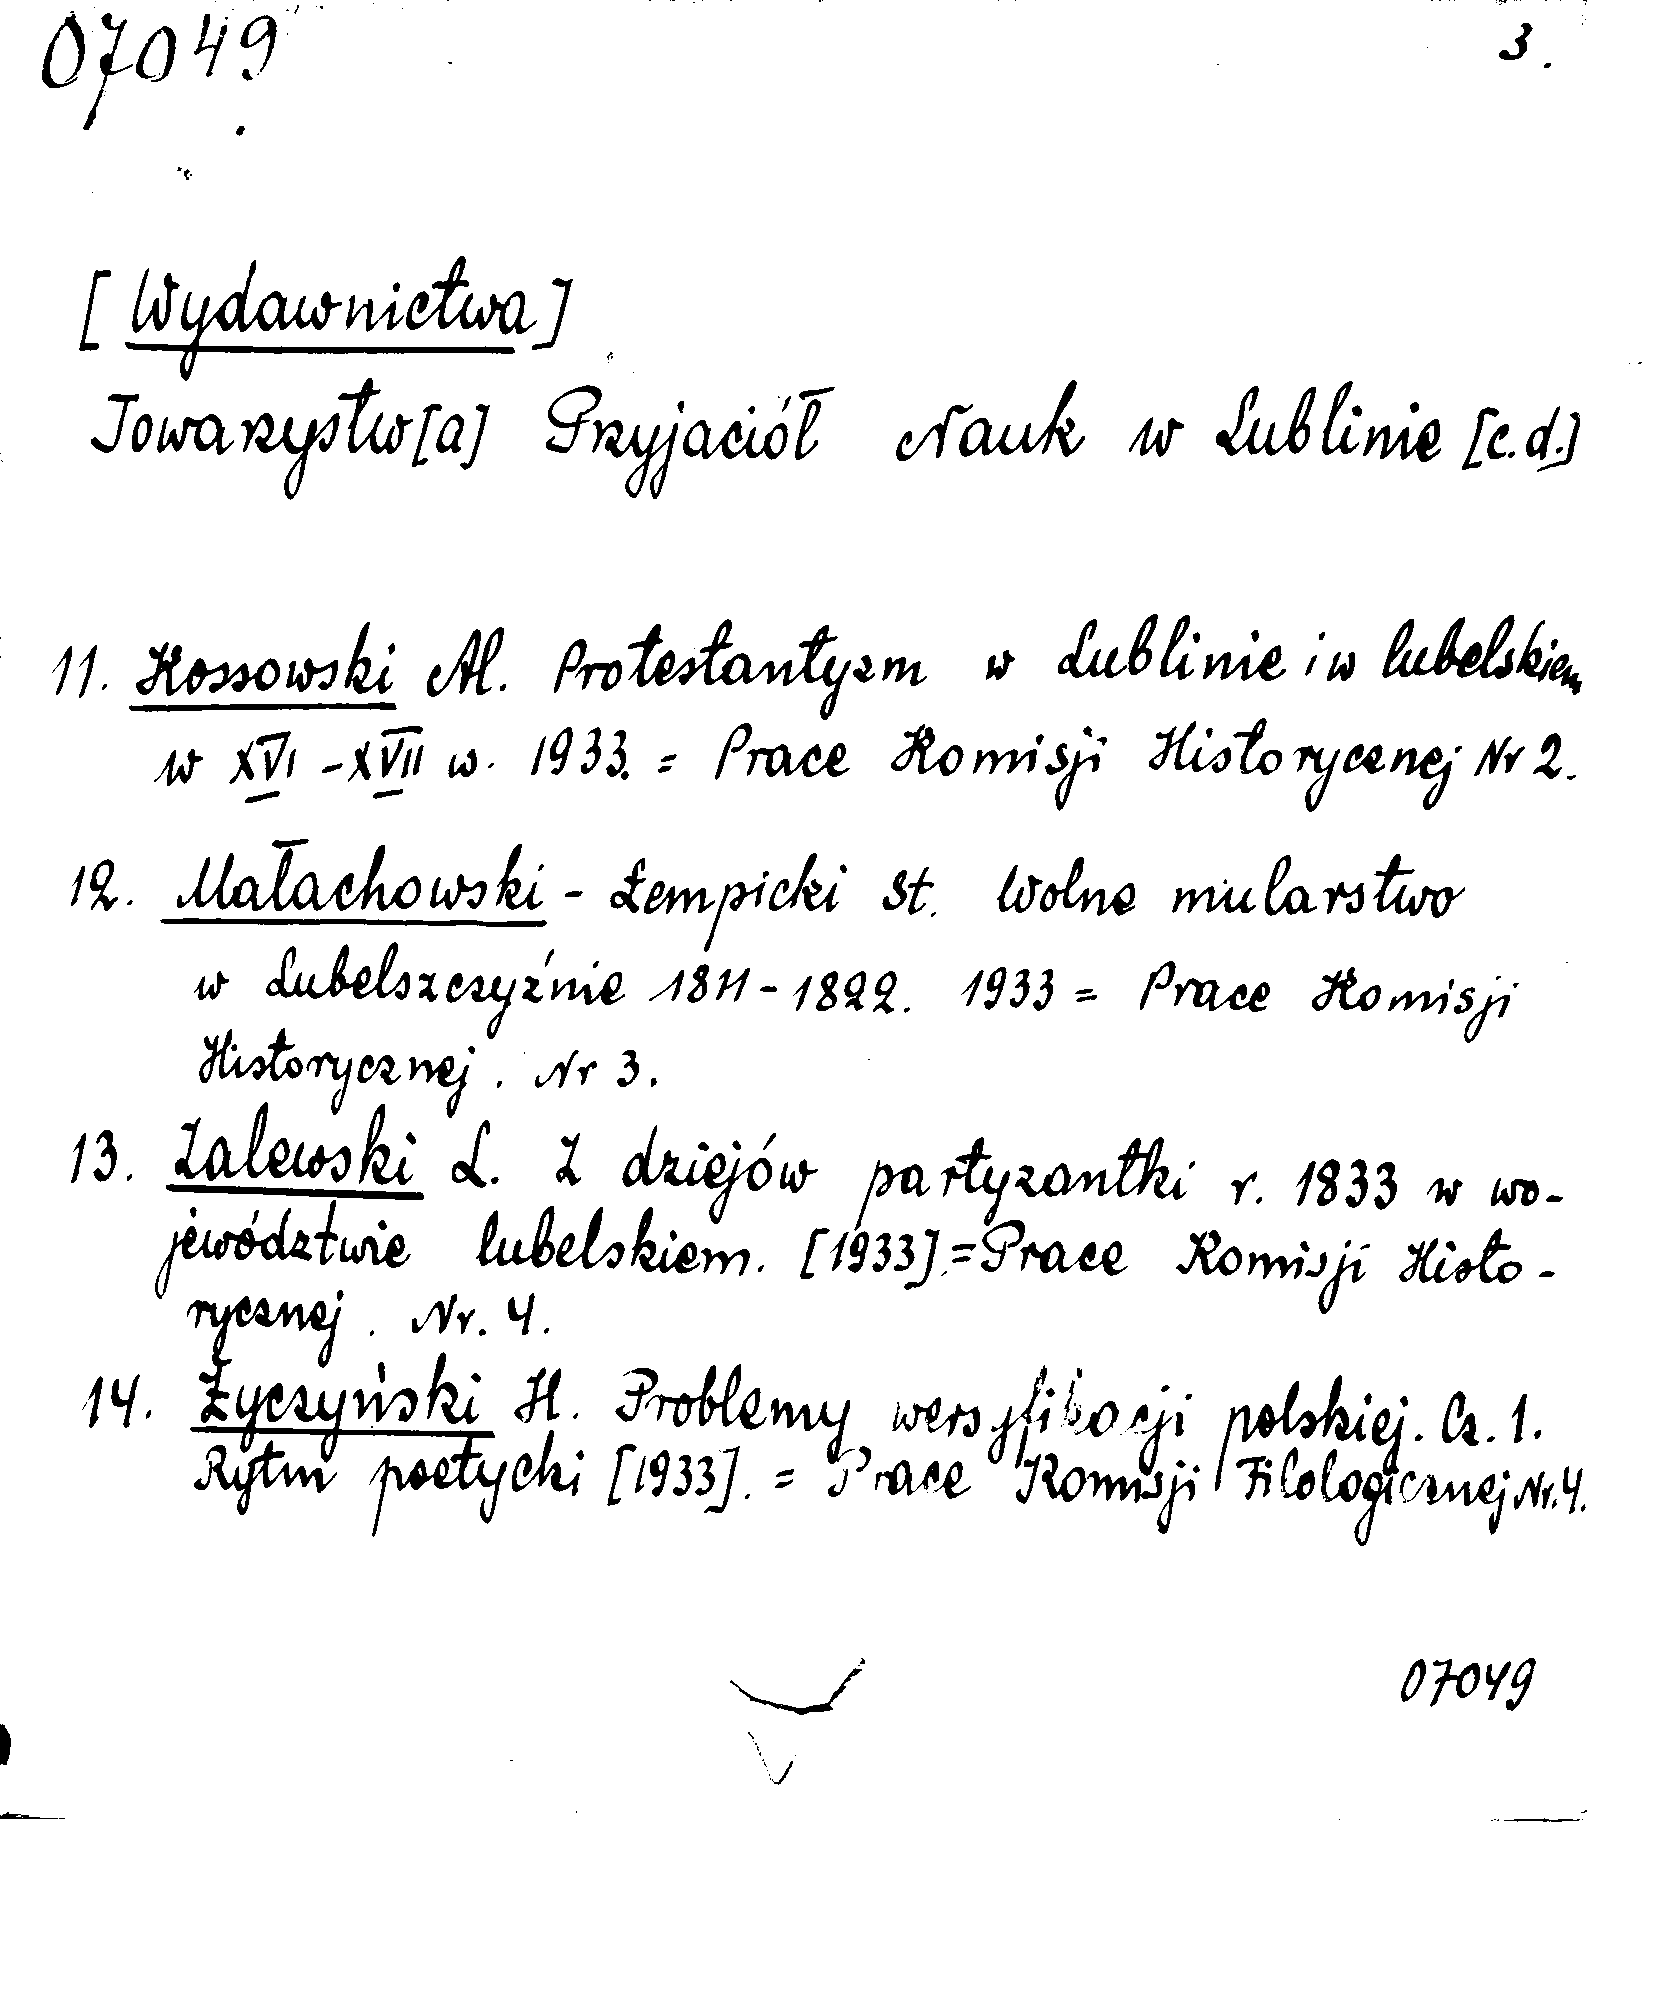 07049
3.
[Wydawnictwa]
Towarzystw[a] Przyjaciół Nauk w Lublinie [c.d.]
11. Kossowski Al. Protestantyzm w Lublinie i w lubelskiem
w XVI - XVII w. 1933. = Prace Komisji Historycznej Nr 2.
12. Małachowski - Łempicki St. Wolne mularstwo
w Lubelszczyźnie 1811 - 1822. 1933 = Prace Komisji
Historycznej. Nr 3.
13. Zalewski L. Z dziejów partyzantki r. 1833 w wo-
jewództwie lubelskiem. [1933]. = Prace Komisji Histo-
rycznej. Nr. 4.
14. Życzyński H. Problemy wersyfikacji polskiej. Cz. 1.
Rytm poetycki [1933]. = Prace Komisji Filologicznej Nr. 4.
07049